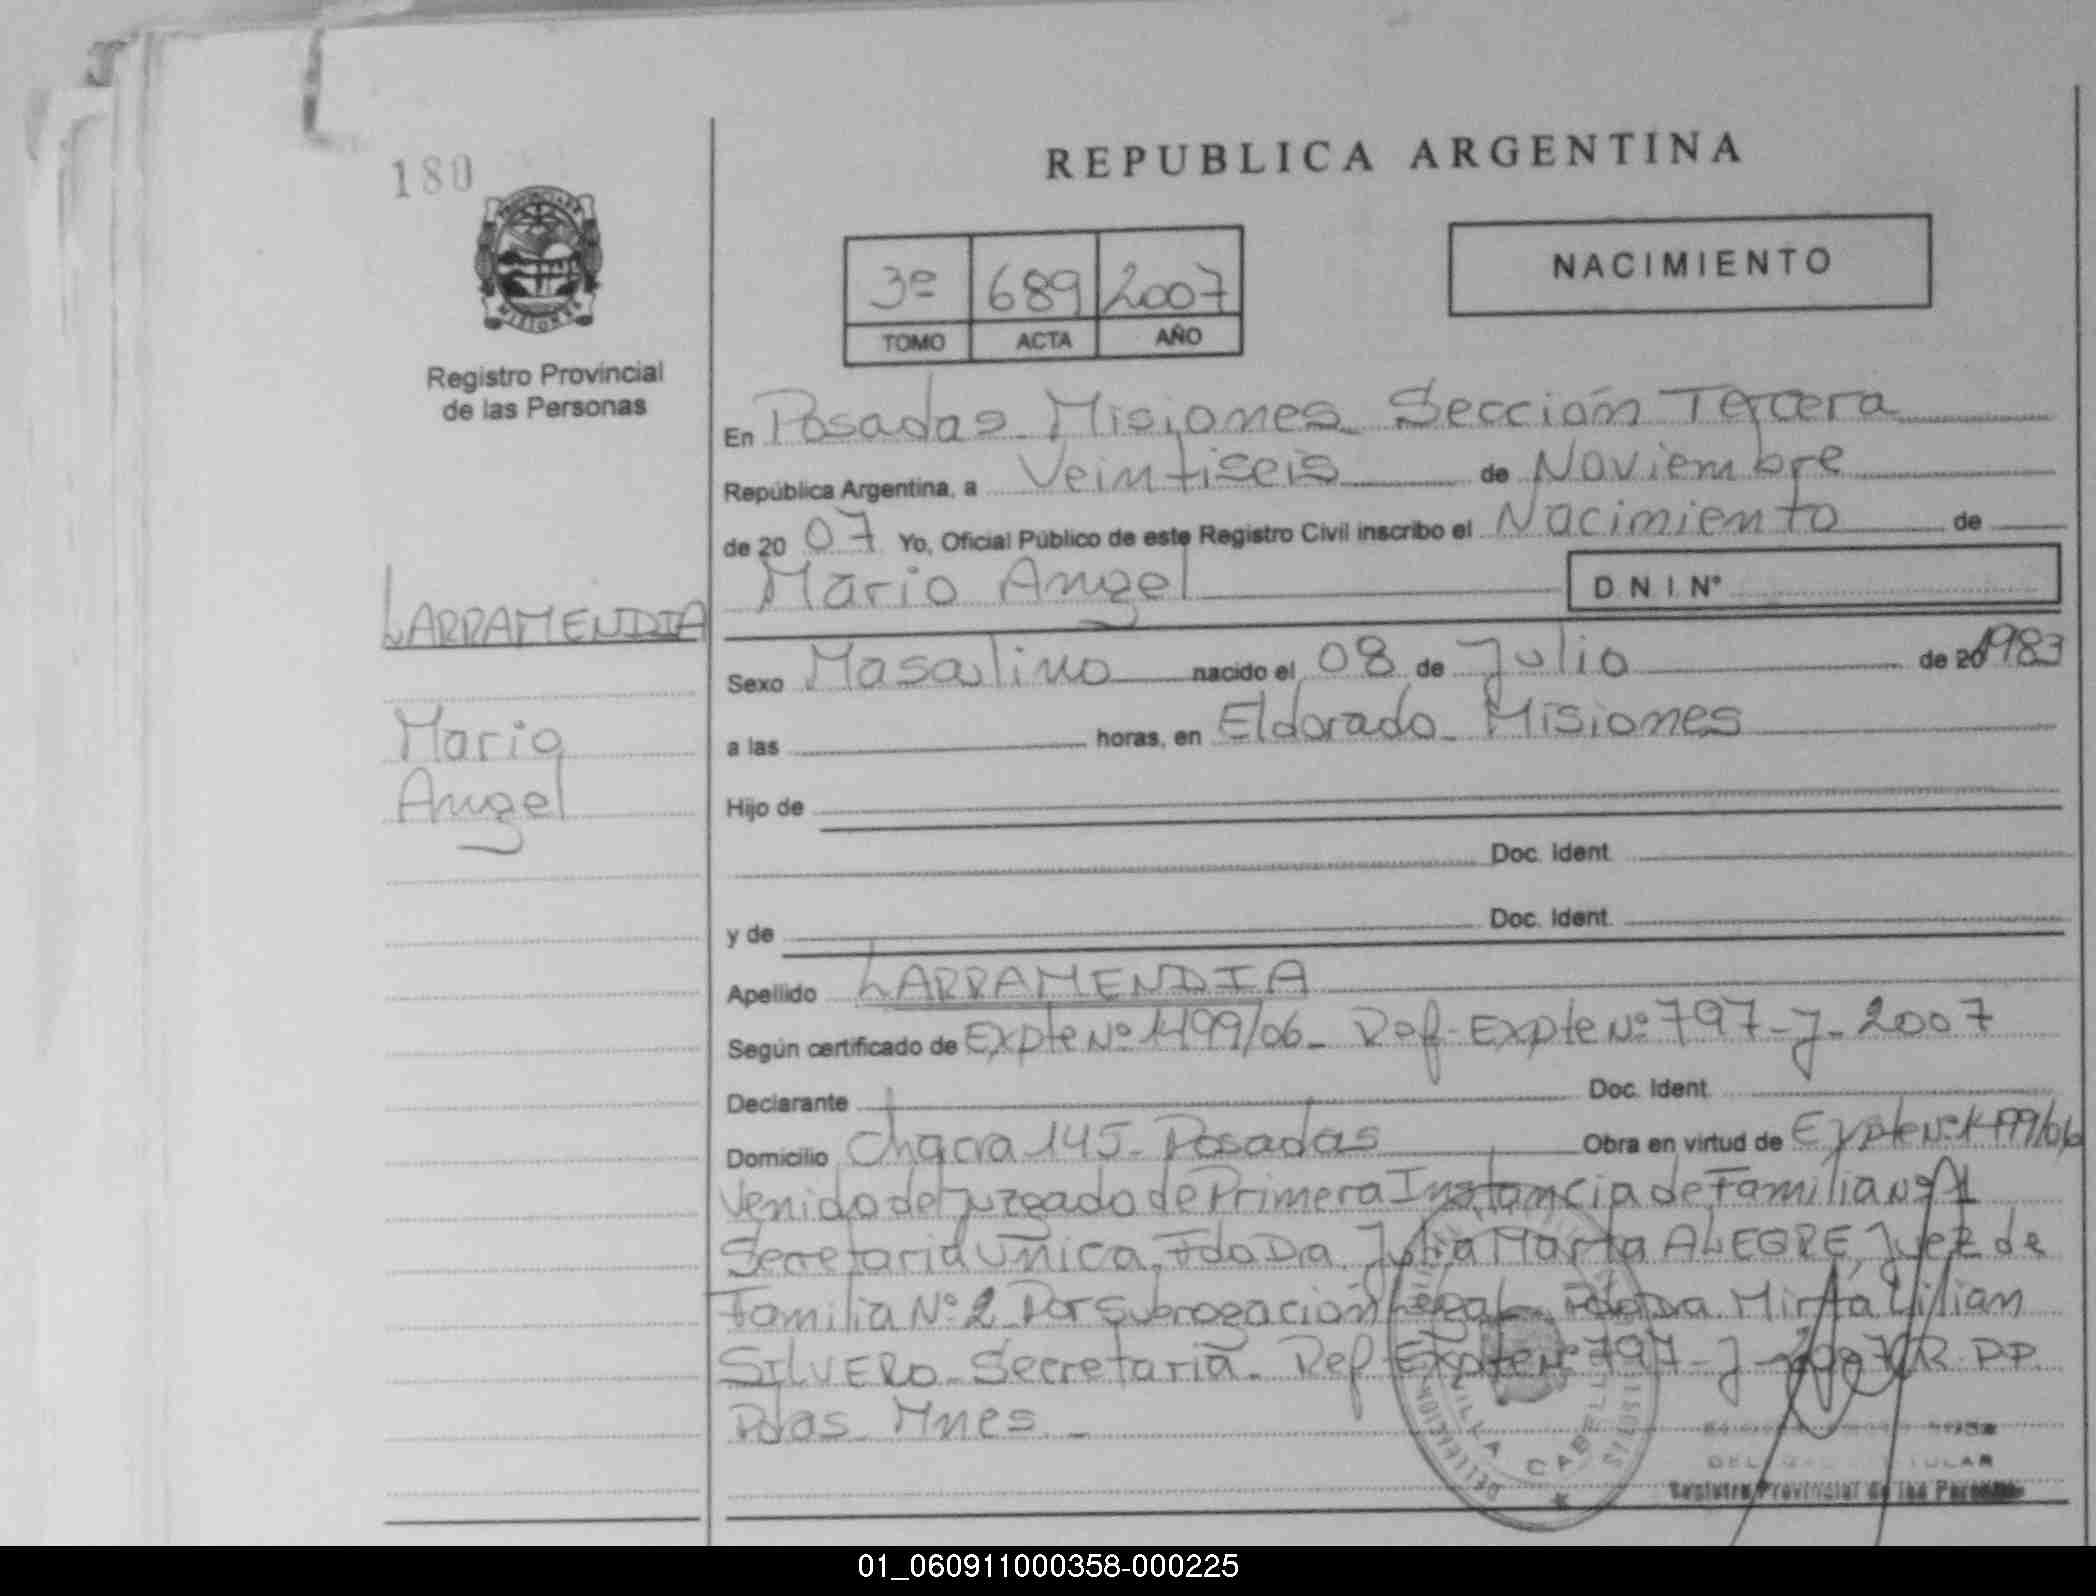 180
REPUBLICA ARGENTINA
NACIMIENTO
3º 689 2007
TOMO ACTA AÑO
MISIONES
Registro Provincial
de las Personas
En Posadas Misiones Sección Tercera
República Argentina, a Veintiseis de Noviembre
de 20 07 Yo, Oficial Público de este Registro Civil inscribo el Nacimiento de
Mario Angel D N I. Nº
LARRAMENDIA
Mario
Angel
Sexo Masculino nacido el 08 de Julio de 20 1983
a las horas, en Eldorado Misiones
Hijo de
Doc. Ident.
y de Doc. Ident.
Apellido LARRAMENDIA
Según certificado de Expte Nº 1499/06 - Ref. Expte Nº 797-J-2007
Declarante Doc. Ident.
Domicilio Chacra 145 - Posadas Obra en virtud de Expte Nº 1499/06
venido del juzgado de Primera Instancia de Familia Nº 1
Secretaria Unica. Fdo Dra. Julia Marta ALEGRE, Juez de
Familia Nº 2 Por Subrogación Legal - Fdo Dra. Mirta Lilian
SILVERO - Secretaria - Ref. Expte Nº 797-J-2007 R.P.P.
Pdas Mnes -
VILLA CABELL
Registro Provincial de las Personas
01_060911000358-000225